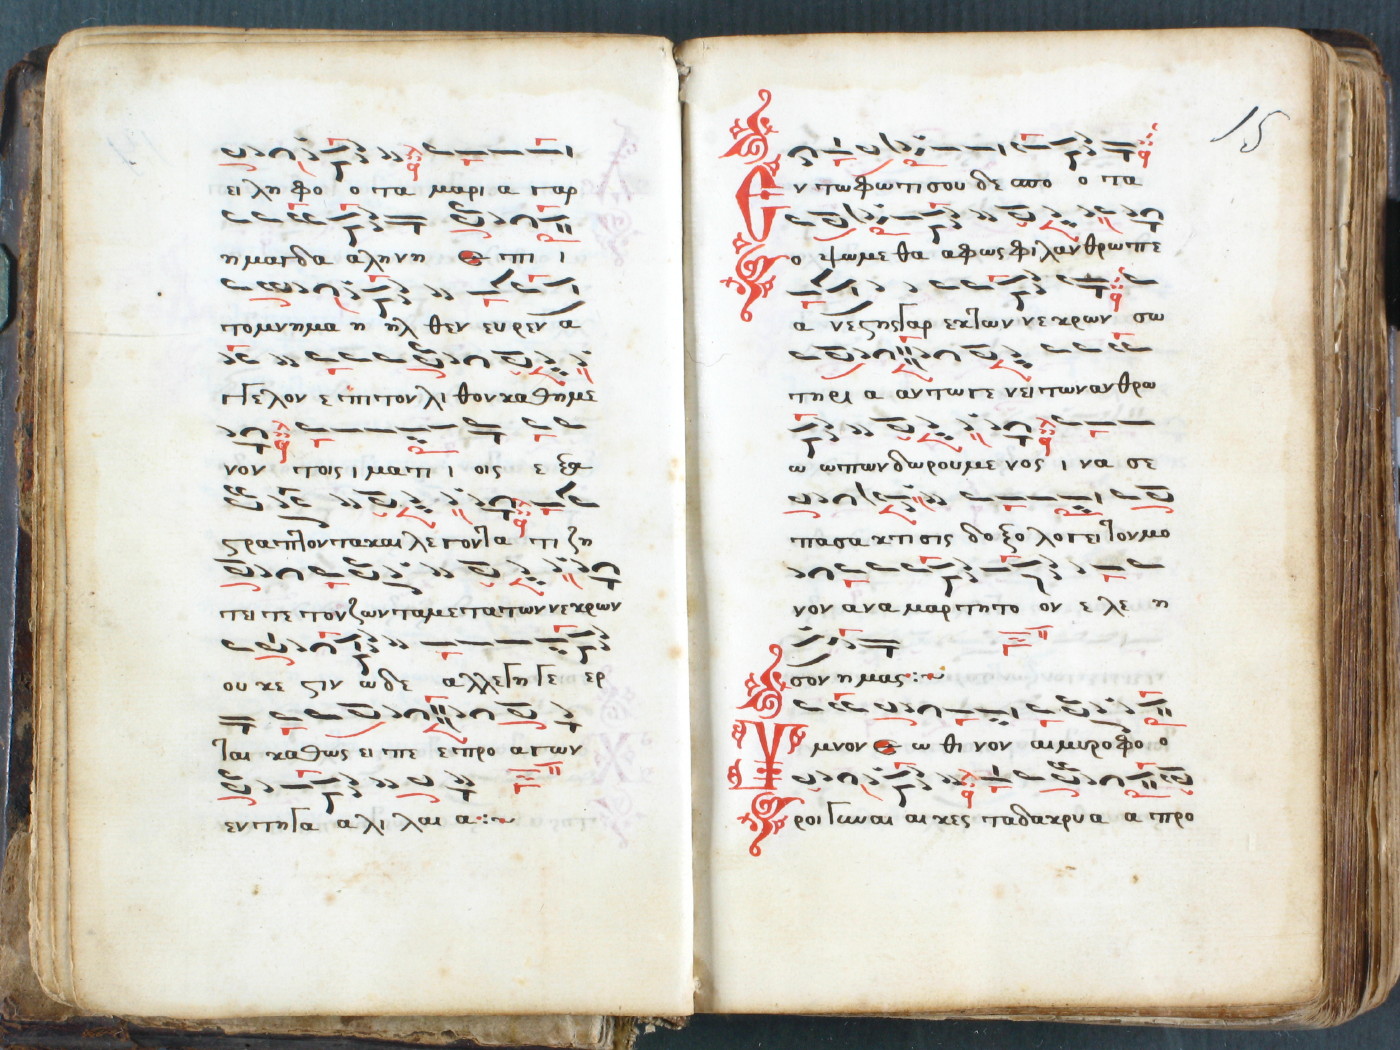 ει λη φο ο τα μαρι α γαρ
η μαγδα α λη νη ϗ ε πι ι
το μνημα η ηλ θεν ευρεν α
γγελον ε πι τον λι θον καθημε
νον τοις ι μα τι ι οις ε ξα
στραπτοντα και λεγοντα τι ζη
τει τε τον ζωντα μετα των νεκρων
ου κε στιν ω δε αλλ εγη γε ερ
ται καθως ει πε ε προ α γων
εν τη γα α λι λαι α :~
15
Εν τω φωτι σου δεσπο ο τα
ο ψωμε θα α φως φιλανθρωπε
α νεστης γαρ εκ των νεκρων σω
τηρι α αν τω γε νει των ανθρω
ω ω πων δωρουμε νος ι να σε
πασα κτι σις δο ξο λογει τον μο
νον ανα μαρτητο ον ε λε η
σον η μας :~
Υμνον ε ω θι νον αι μυροφο ο
ροι γυναι αι κες τα δακρυ α α προ